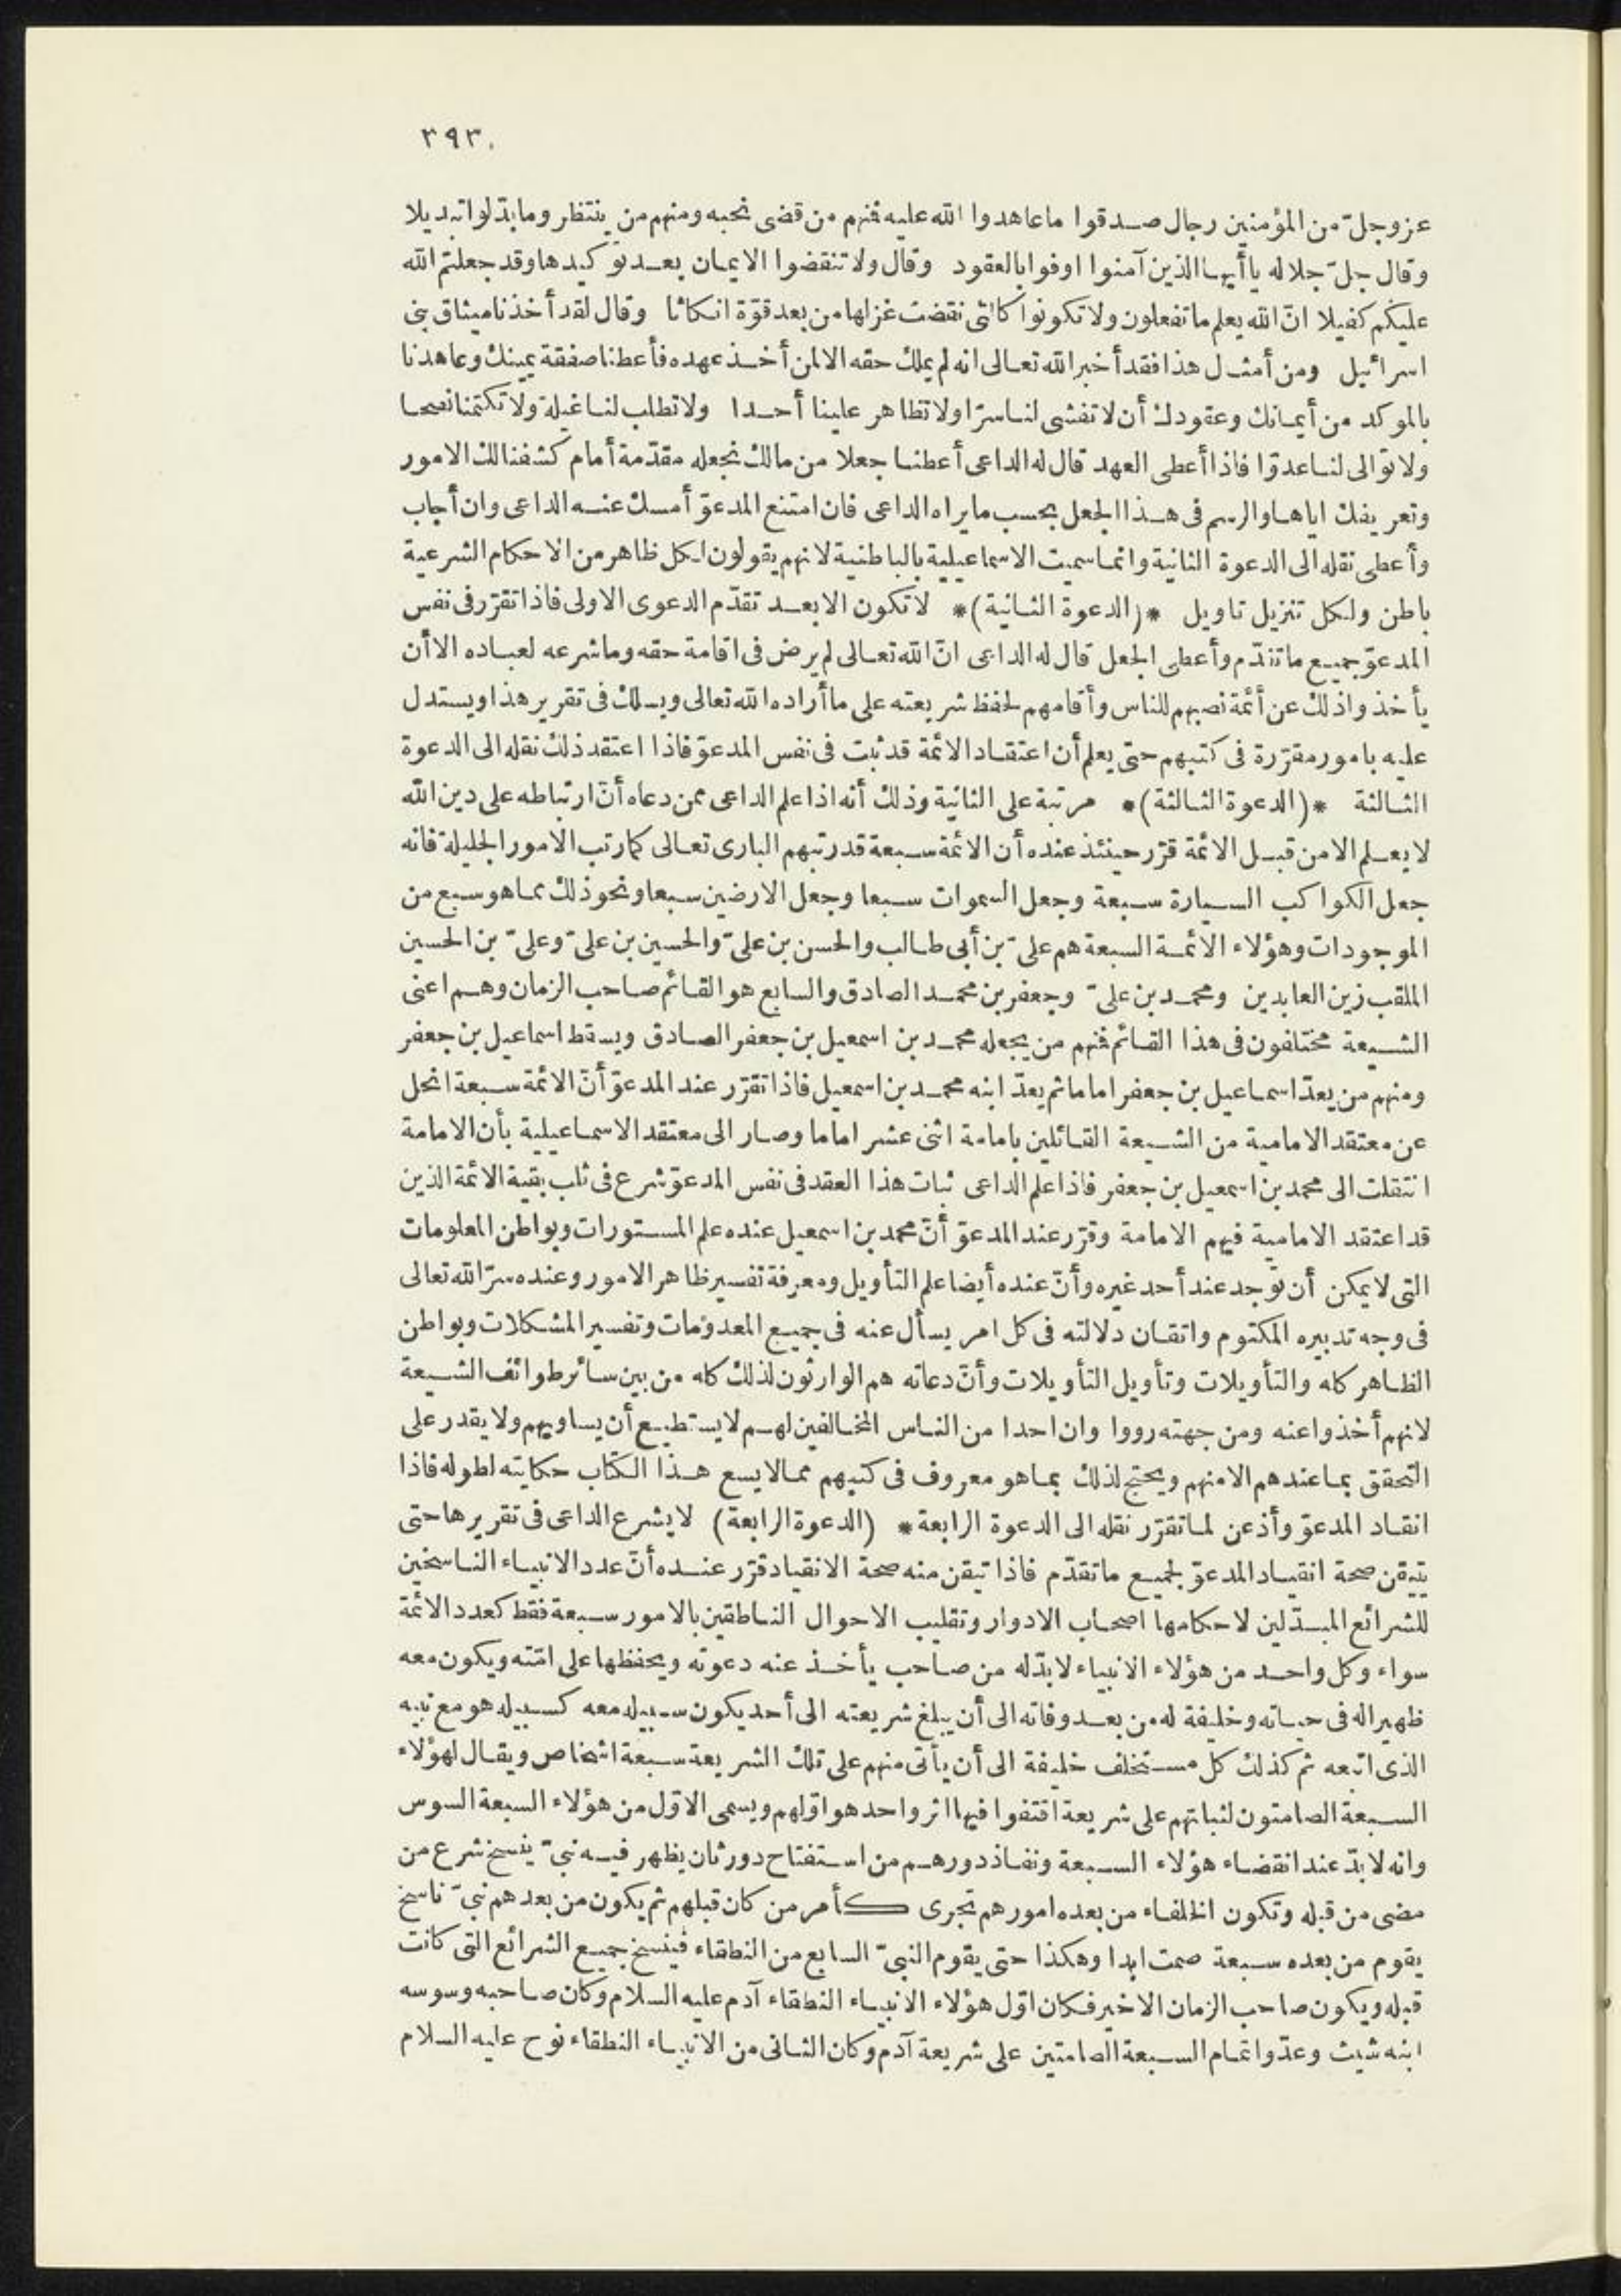 ٣٩٣
عز وجل من المؤمنين رجال صدقوا ما عاهدوا الله عليه فنهم من قضى نحبه ومنهم من ينتظر وما بدّلوا تبديلا
وقال جلّ جلاله يا أيها الذين آمنوا اوفوا بالعقود وقال ولا تنقضوا الايمان بعد توكيدها وقد جعلتم الله
عليكم كفيلا انّ الله يعلم ما تفعلون ولا تكونوا كالتى نقضت غزلها من بعد قوّة انكاثا وقال لقد أخذنا ميثاق بنى
اسرائيل ومن أمثال هذا فقد أخبر الله تعالى انه لم يملك حقه الا لمن أخذ عهده فأعطنا صفقة يمينك وعاهدنا
بالموكد من أيمانك وعقودك أن لا تفشى لنا سرّا ولا تظاهر علينا أحدا ولا تطلب لنا غيلة ولا تكتمنا نصحا
ولا توالى لنا عدوّا فاذا أعطى العهد قال له الداعى أعطنا جعلا من مالك نجعله مقدّمة أمام كشفنا لك الامور
وتعريفك اياها والرسم فى هذا الجعل بحسب ما يراه الداعى فان امتنع المدعوّ أمسك عنه الداعى وان أجاب
وأعطى نقله الى الدعوة الثانية وانما سميت الاسماعيلية بالباطنية لانهم يقولون لكل ظاهر من الاحكام الشرعية
باطن ولكل تنزيل تاويل *(الدعوة الثانية)* لا تكون الا بعد تقدّم الدعوى الاولى فاذا تقرّر فى نفس
المدعوّ جميع ما تقدّم وأعطى الجعل قال له الداعى انّ الله تعالى لم يرض فى اقامة حقه وما شرعه لعباده الا أن
يأخذوا ذلك عن أئمة نصبهم للناس وأقامهم لحفظ شريعته على ما أراده الله تعالى ويسلك فى تقرير هذا ويستدل
عليه بامور مقرّرة فى كتبهم حتى يعلم أن اعتقاد الائمة قد ثبت فى نفس المدعوّ فاذا اعتقد ذلك نقله الى الدعوة
الثالثة *(الدعوة الثالثة)* مرتبة على الثانية وذلك أنه اذا علم الداعى ممن دعاه أنّ ارتباطه على دين الله
لا يعلم الا من قبل الائمة قرّر حينئذ عنده أن الائمة سبعة قد رتبهم البارى تعالى كما رتب الامور الجليلة فانه
جعل الكواكب السيارة سبعة وجعل السموات سبعا وجعل الارضين سبعا ونحو ذلك مما هو سبع من
الموجودات وهؤلاء الائمة السبعة هم علىّ بن أبى طالب والحسن بن علىّ والحسين بن علىّ وعلىّ بن الحسين
الملقب زين العابدين ومحمد بن علىّ وجعفر بن محمد الصادق والسابع هو القائم صاحب الزمان وهم اعنى
الشيعة مختلفون فى هذا القائم فنهم من يجعله محمد بن اسمعيل بن جعفر الصادق ويسقط اسماعيل بن جعفر
ومنهم من يعدّ اسماعيل بن جعفر اماما ثم يعدّ ابنه محمد بن اسمعيل فاذا تقرّر عند المدعوّ أنّ الائمة سبعة انحل
عن معتقد الامامية من الشيعة القائلين بامامة اثنى عشر اماما وصار الى معتقد الاسماعيلية بأن الامامة
انتقلت الى محمد بن اسمعيل بن جعفر فاذا علم الداعى ثبات هذا العقد فى نفس المدعوّ شرع فى ثلب بقية الائمة الذين
قد اعتقد الامامية فيهم الامامة وقرّر عند المدعوّ أنّ محمد بن اسمعيل عنده علم المستورات وبواطن المعلومات
التى لا يمكن أن توجد عند أحد غيره وأنّ عنده أيضا علم التأويل ومعرفة تفسير ظاهر الامور وعنده سرّ الله تعالى
فى وجه تدبيره المكتوم واتقان دلالته فى كل امر يسأل عنه فى جميع المعدومات وتفسير المشكلات وبواطن
الظاهر كله والتأويلات وتأويل التأويلات وأنّ دعاته هم الوارثون لذلك كله من بين سائر طوائف الشيعة
لانهم أخذوا عنه ومن جهته رووا وان احدا من الناس المخالفين لهم لا يستطيع أن يساويهم ولا يقدر على
التحقق بما عندهم الا منهم ويحتج لذلك بما هو معروف فى كتبهم مما لا يسع هذا الكتاب حكايته لطوله فاذا
انقاد المدعوّ وأذعن لما تقرّر نقله الى الدعوة الرابعة * (الدعوة الرابعة) لا يشرع الداعى فى تقريرها حتى
يتيقن صحة انقياد المدعوّ لجميع ما تقدّم فاذا تيقن منه صحة الانقياد قرّر عنده أنّ عدد الانبياء الناسخين
للشرائع المبدّلين لاحكامها اصحاب الادوار وتقليب الاحوال الناطقين بالامور سبعة فقط كعدد الائمة
سواء وكل واحد من هؤلاء الانبياء لا بدّ له من صاحب يأخذ عنه دعوته ويحفظها على امّته ويكون معه
ظهيرا له فى حياته وخليفة له من بعد وفاته الى أن يبلغ شريعته الى أحد يكون سبيله معه كسبيله هو مع نبيه
الذى اتبعه ثم كذلك كل مستخلف خليفة الى أن يأتى منهم على تلك الشريعة سبعة اشخاص ويقال لهؤلاء
السبعة الصامتون لثباتهم على شريعة اقتفوا فيها اثر واحد هو اوّلهم ويسمى الاوّل من هؤلاء السبعة السوس
وانه لا بدّ عند انقضاء هؤلاء السبعة ونفاذ دورهم من استفتاح دور ثان يظهر فيه نبىّ ينسخ شرع من
مضى من قبله وتكون الخلفاء من بعده امورهم تجرى كأمر من كان قبلهم ثم يكون من بعدهم نبىّ ناسخ
يقوم من بعده سبعة صمت ابدا وهكذا حتى يقوم النبىّ السابع من النطقاء فينسخ جميع الشرائع التى كانت
قبله ويكون صاحب الزمان الاخير فكان اوّل هؤلاء الانبياء النطقاء آدم عليه السلام وكان صاحبه وسوسه
ابنه شيث وعدّوا تمام السبعة الصامتين على شريعة آدم وكان الثانى من الانبياء النطقاء نوح عليه السلام